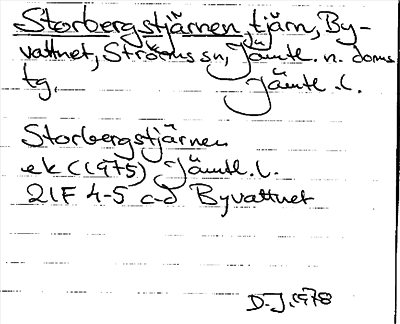 Storbergstjärnen, tjärn, By-
vattnet, Ströms sn, Jämtl. n. doms
tg. Jämtl. l.
Storbergstjärnen
ek (1975) Jämtl. l.
21F 4-5 c-d Byvattnet
D.J. 1978